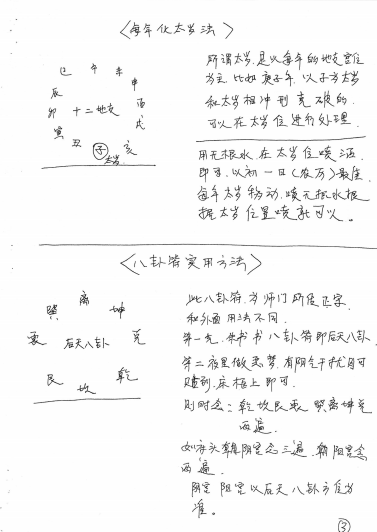 <每年化太岁法>
巳 午 未
辰 申
卯 十二地支 酉
寅 戌
丑 子 亥
太岁
所谓太岁，是以每年的地支宫位
为主，比如庚子年，以子为太岁
和太岁相冲刑克破的，
可以在太岁位进行处理。
用无根水，在太岁位喷洒，
即可，以初一日(农历)最佳，
每年太岁移动，喷无根水根
据太岁位置喷就可以。
<八卦符实用方法>
巽 离 坤
震 后天八卦 兑
艮 坎 乾
此八卦符，为师门所传正宗，
和外面用法不同。
第一先，朱书书八卦符即后天八卦，
第二夜里做恶梦，有阴气干扰，自可
贴到，床梧上即可。
则时念：乾坎艮震 巽离坤兑
两遍，
如床头朝阴宫念三遍，朝阳宫念
两遍。
阴宫 阳宫以后天八卦方位为
准。
③